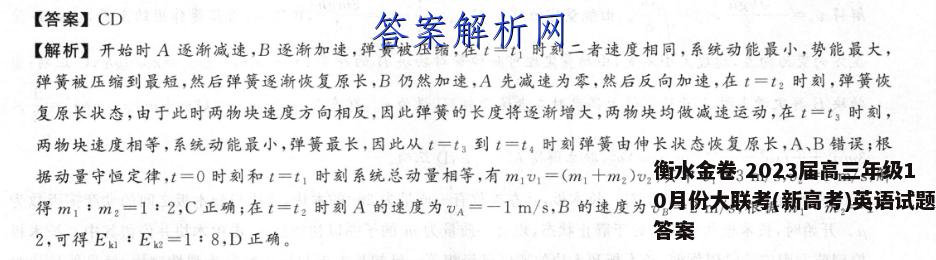 【答案】CD
答案解析网
【解析】开始时 A 逐渐减速,B 逐渐加速,弹簧被压缩,在 t=t₁ 时刻二者速度相同,系统动能最小,势能最大,
弹簧被压缩到最短,然后弹簧逐渐恢复原长,B 仍然加速,A 先减速为零,然后反向加速,在 t=t₂ 时刻,弹簧恢
复原长状态,由于此时两物块速度方向相反,因此弹簧的长度将逐渐增大,两物块均做减速运动,在 t=t₃ 时刻,
两物块速度相等,系统动能最小,弹簧最长,因此从 t=t₃ 到 t=t₄ 时刻弹簧由伸长状态恢复原长,A、B 错误;根
据动量守恒定律,t=0 时刻和 t=t₁ 时刻系统总动量相等,有 m₁v₁=(m₁+m₂)v₂
得 m₁∶m₂=1∶2,C 正确;在 t=t₂ 时刻 A 的速度为 v_A=-1 m/s,B 的速度为
2,可得 E_k1∶E_k2=1∶8,D 正确。
衡水金卷 2023届高三年级1
0月份大联考(新高考)英语试题
答案